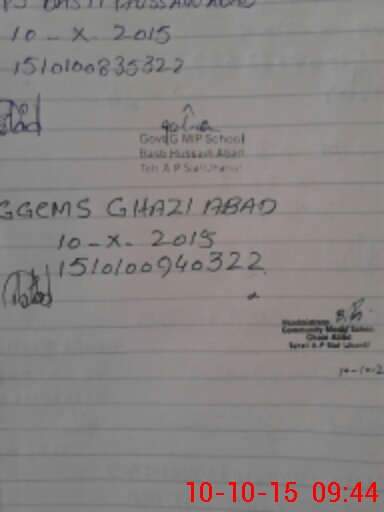 BASTI HUSSAIN ABAD
10 - X. 2015
1510100835322
Govt G M/P School
Basti Hussain Abad
Teh A P Sial (Jhang)
GGCMS GHAZI ABAD
10 - X. 2015
1510100940322
Headmistress
Community Model School
Ghazi Abad
Tehsil A P Sial (Jhang)
10-10-2
10-10-15 09:44